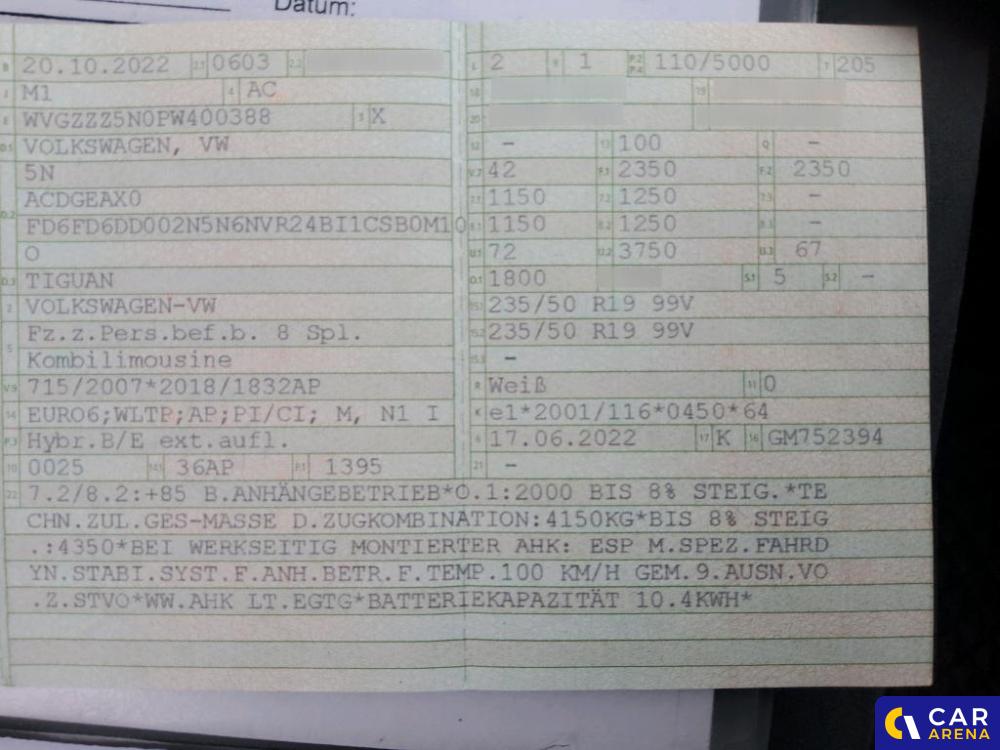 Datum:
B 20.10.2022 2.1 0603 2.2 L 2 9 1 P.2 P.4 110/5000 T 205
J M1 4 AC 18 19
E WVGZZZ5N0PW400388 3 X 20
D.1 VOLKSWAGEN, VW 12 – 13 100 Q –
5N V.7 42 F.1 2350 F.2 2350
D.2 ACDGEAX0 7.1 1150 7.2 1250 7.3 –
FD6FD6DD002N5N6NVR24BI1CSB0M10 8.1 1150 8.2 1250 8.3 –
O U.1 72 U.2 3750 U.3 67
D.3 TIGUAN O.1 1800 S.1 5 S.2 –
2 VOLKSWAGEN-VW 15.1 235/50 R19 99V
5 Fz.z.Pers.bef.b. 8 Spl. 15.2 235/50 R19 99V
Kombilimousine 15.3 –
V.9 715/2007*2018/1832AP R Weiß 11 0
14 EURO6;WLTP;AP;PI/CI; M, N1 I K e1*2001/116*0450*64
P.3 Hybr.B/E ext.aufl. 6 17.06.2022 17 K 16 GM752394
10 0025 14.1 36AP P.1 1395 21 –
22 7.2/8.2:+85 B.ANHÄNGEBETRIEB*O.1:2000 BIS 8% STEIG.*TE
CHN.ZUL.GES-MASSE D.ZUGKOMBINATION:4150KG*BIS 8% STEIG
.:4350*BEI WERKSEITIG MONTIERTER AHK: ESP M.SPEZ.FAHRD
YN.STABI.SYST.F.ANH.BETR.F.TEMP.100 KM/H GEM.9.AUSN.VO
.Z.STVO*WW.AHK LT.EGTG*BATTERIEKAPAZITÄT 10.4KWH*
CAR
ARENA